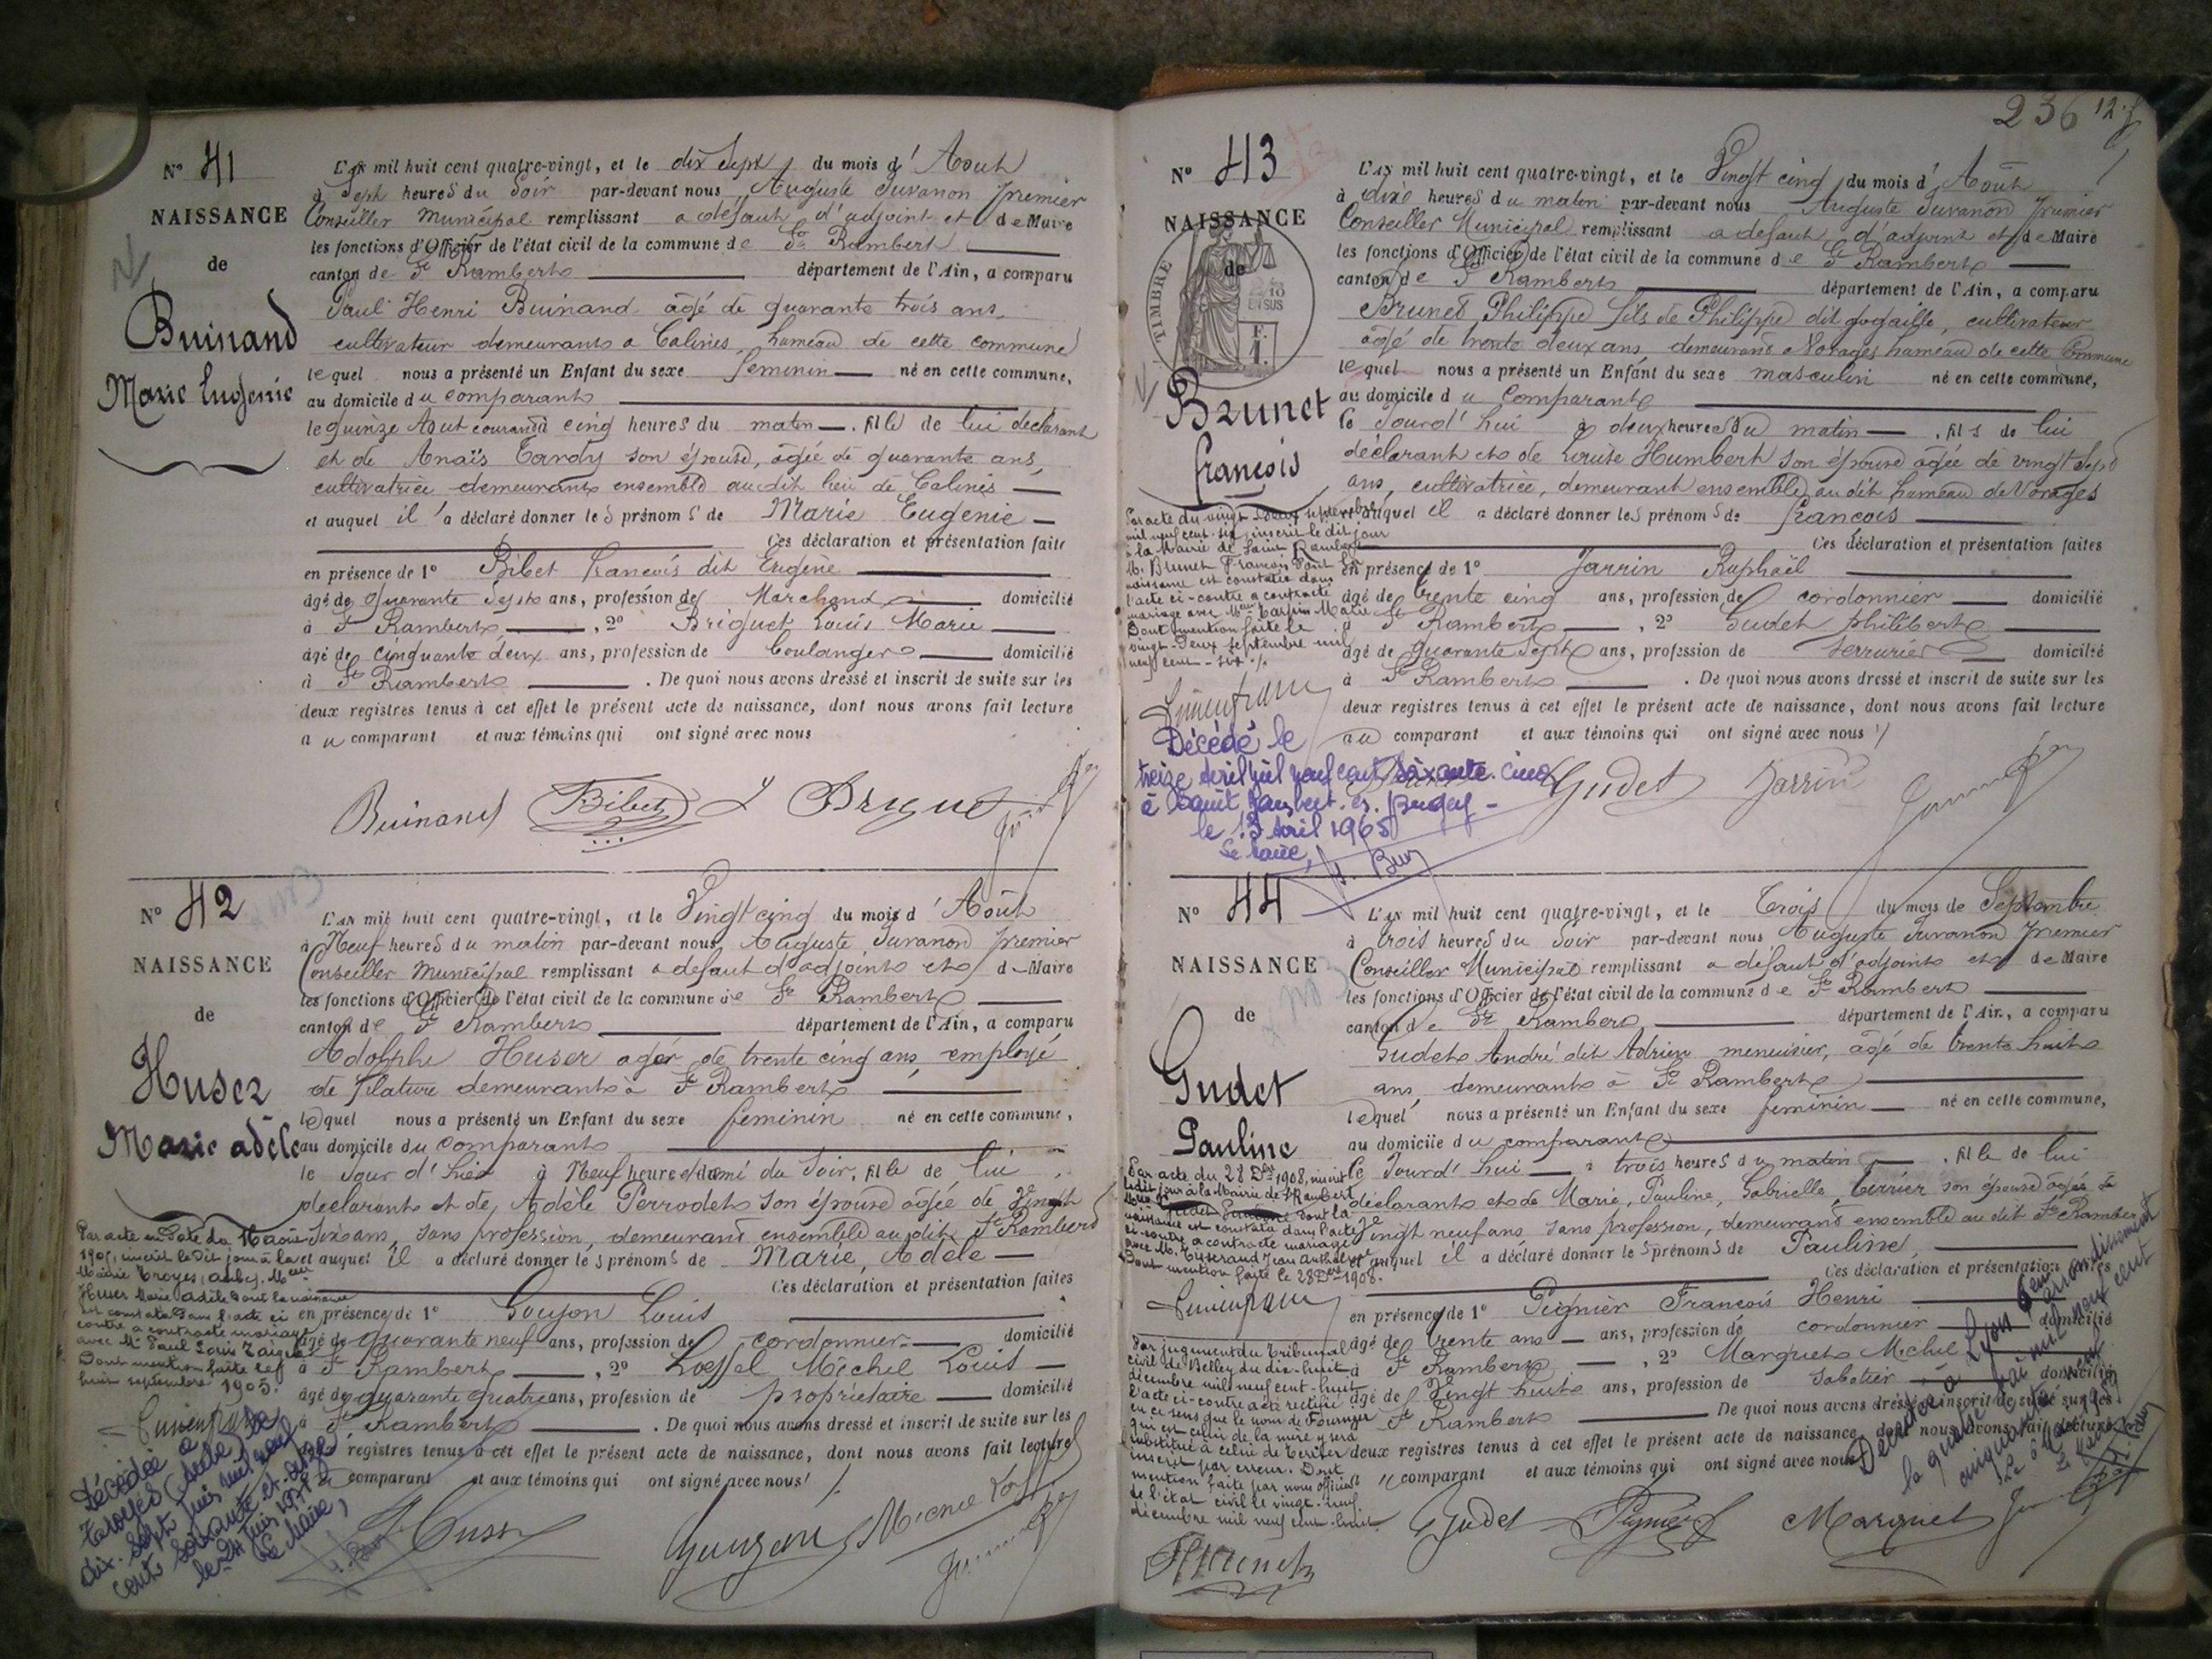 N° 41
NAISSANCE
de
Buinand
Marie Eugenie
L'AN mil huit cent quatre-vingt, et le dix Sept du mois d'Aout
à Sept heures du Soir par-devant nous Auguste Juvanon premier
Conseiller Municipal remplissant a défaut d'adjoint et de Maire
les fonctions d'Officier de l'état civil de la commune de St Rambert
canton de St Rambert département de l'Ain, a comparu
Paul Henri Buinand âgé de quarante trois ans
cultivateur demeurant a Calines, hameau de cette commune
lequel nous a présenté un Enfant du sexe feminin né en cette commune,
au domicile du comparant
le quinze Aout courant à cinq heures du matin, fille de lui déclarant
et de Anaïs Tardy son épouse, âgée de quarante ans,
cultivatrice demeurant ensemble audit lieu de Calines
et auquel il a déclaré donner les prénoms de Marie Eugenie
Ces déclaration et présentation faite
en présence de 1° Bibet François dit Eugène
âgé de quarante Sept ans, profession de Marchand domicilié
à St Rambert, 2° Briquet Louis Marie
âgé de cinquante deux ans, profession de boulanger domicilié
à St Rambert. De quoi nous avons dressé et inscrit de suite sur les
deux registres tenus à cet effet le présent acte de naissance, dont nous avons fait lecture
au comparant et aux témoins qui ont signé avec nous
Buinand Bibet L Briquet
N° 42
NAISSANCE
de
Huser
Marie adèle
L'AN mil huit cent quatre-vingt, et le Vingt cinq du mois d'Août
à Neuf heures du matin par-devant nous Auguste Juvanon premier
Conseiller Municipal remplissant a defaut d'adjoint et de Maire
les fonctions d'Officier de l'état civil de la commune de St Rambert
canton de St Rambert département de l'Ain, a comparu
Adolphe Huser agé de trente cinq ans, employé
de filature demeurant à St Rambert
lequel nous a présenté un Enfant du sexe feminin né en cette commune,
au domicile du comparant
le Jour d'hier à Neuf heures demi du Soir, fille de lui
declarant et de Adèle Perrodet son épouse âgée de Vingt
Six ans, sans profession, demeurant ensemble au dit St Rambert
et auquel il a déclaré donner les prénoms de Marie, Adèle
Ces déclaration et présentation faites
en présence de 1° Goujon Louis
âgé de quarante neuf ans, profession de cordonnier domicilié
à St Rambert, 2° Loeffel Michel Louis
âgé de quarante quatre ans, profession de propriétaire domicilié
à St Rambert. De quoi nous avons dressé et inscrit de suite sur les
registres tenus à cet effet le présent acte de naissance, dont nous avons fait lecture
comparant et aux témoins qui ont signé avec nous
Par acte en date du
1905, inscrit le dit jour à la
Mairie Troyes, (Aube), Melle
Huser Marie Adèle dont la naissance
est constatée dans l'acte ci
contre a contracté mariage
avec Mr Paul Louis
Dont mention faite le
huit septembre 1905.
Décédée à
Troyes (Aube) le
dix-sept juin mil neuf
cent soixante et onze
le 24 Juin 1971
Le Maire,
236
N° 43
NAISSANCE
de
TIMBRE
Brunet
françois
L'AN mil huit cent quatre-vingt, et le Vingt cinq du mois d'Août
à dix heures du matin par-devant nous Auguste Juvanon premier
Conseiller Municipal remplissant a defaut d'adjoint et de Maire
les fonctions d'Officier de l'état civil de la commune de St Rambert
canton de St Rambert département de l'Ain, a comparu
Brunet Philippe fils de Philippe dit gogaille, cultivateur
âgé de trente deux ans demeurant a Vorages hameau de cette Commune
lequel nous a présenté un Enfant du sexe masculin né en cette commune,
au domicile du Comparant
le Jourd'hui à deux heures du matin, fils de lui
déclarant et de Louise Humbert son épouse âgée de vingt Sept
ans, cultivatrice, demeurant ensemble au dit hameau de Vorages
et auquel il a déclaré donner les prénoms de francois
Ces déclaration et présentation faites
en présence de 1° Jarrin Raphaël
âgé de trente cinq ans, profession de cordonnier domicilié
à St Rambert, 2° Gudet philibert
âgé de quarante Sept ans, profession de Serrurier domicilié
à St Rambert. De quoi nous avons dressé et inscrit de suite sur les
deux registres tenus à cet effet le présent acte de naissance, dont nous avons fait lecture
au comparant et aux témoins qui ont signé avec nous
Gudet Jarrin
Par acte du vingt deux septembre
mil neuf cent six, inscrit le dit jour
à la Mairie de Saint Rambert
M. Brunet François dont la
naissance est constatée dans
l'acte ci-contre a contracté
mariage avec Melle Marie
Dont mention faite le
vingt-deux septembre mil
neuf cent-six.
Décédé le
treize avril mil neuf cent soixante-cinq
à Saint Rambert-en-Bugey
le 13 Avril 1965
Le Maire,
N° 44
NAISSANCE
de
Gudet
Pauline
L'AN mil huit cent quatre-vingt, et le Trois du mois de Septembre
à trois heures du Soir par-devant nous Auguste Juvanon premier
Conseiller Municipal remplissant a defaut d'adjoint et de Maire
les fonctions d'Officier de l'état civil de la commune de St Rambert
canton de St Rambert département de l'Ain, a comparu
Gudet André dit Adrien menuisier, âgé de trente huit
ans, demeurant à St Rambert
lequel nous a présenté un Enfant du sexe feminin né en cette commune,
au domicile du comparant
le Jourd'hui à trois heures du matin, fille de lui
déclarant et de Marie, Pauline, Gabrielle, Terrier son épouse âgée de
Vingt neuf ans sans profession, demeurant ensemble au dit St Rambert
et auquel il a déclaré donner les prénoms de Pauline,
Ces déclaration et présentation faites
en présence de 1° Pignier François Henri
âgé de trente ans ans, profession de cordonnier domicilié
à St Rambert, 2° Marquet Michel
âgé de Vingt huit ans, profession de Sabotier domicilié
St Rambert De quoi nous avons dressé et inscrit de suite sur les
deux registres tenus à cet effet le présent acte de naissance, dont nous avons fait lecture
comparant et aux témoins qui ont signé avec nous
Gudet Pignier Marquet
Par acte du 28 Dbre 1908, inscrit le
dit jour à la Mairie de St Rambert,
Melle Gudet Pauline dont la
naissance est constatée dans l'acte
ci-contre a contracté mariage
avec M. Tisserand Jean Anthelme
Dont mention faite le 28 Dbre 1908.
Par jugement du Tribunal
civil de Belley du dix-huit
décembre mil neuf cent-huit
l'acte ci-contre a été rectifié
en ce sens que le nom de Fournier
qui est celui de la mère y sera
substitué à celui de Terrier
inscrit par erreur. Dont
mention faite par nous officier
de l'état civil le vingt-neuf
décembre mil neuf cent-huit.
Décédée à Lyon arrondissement
le quatre mai mil neuf cent
cinquante
Le Maire